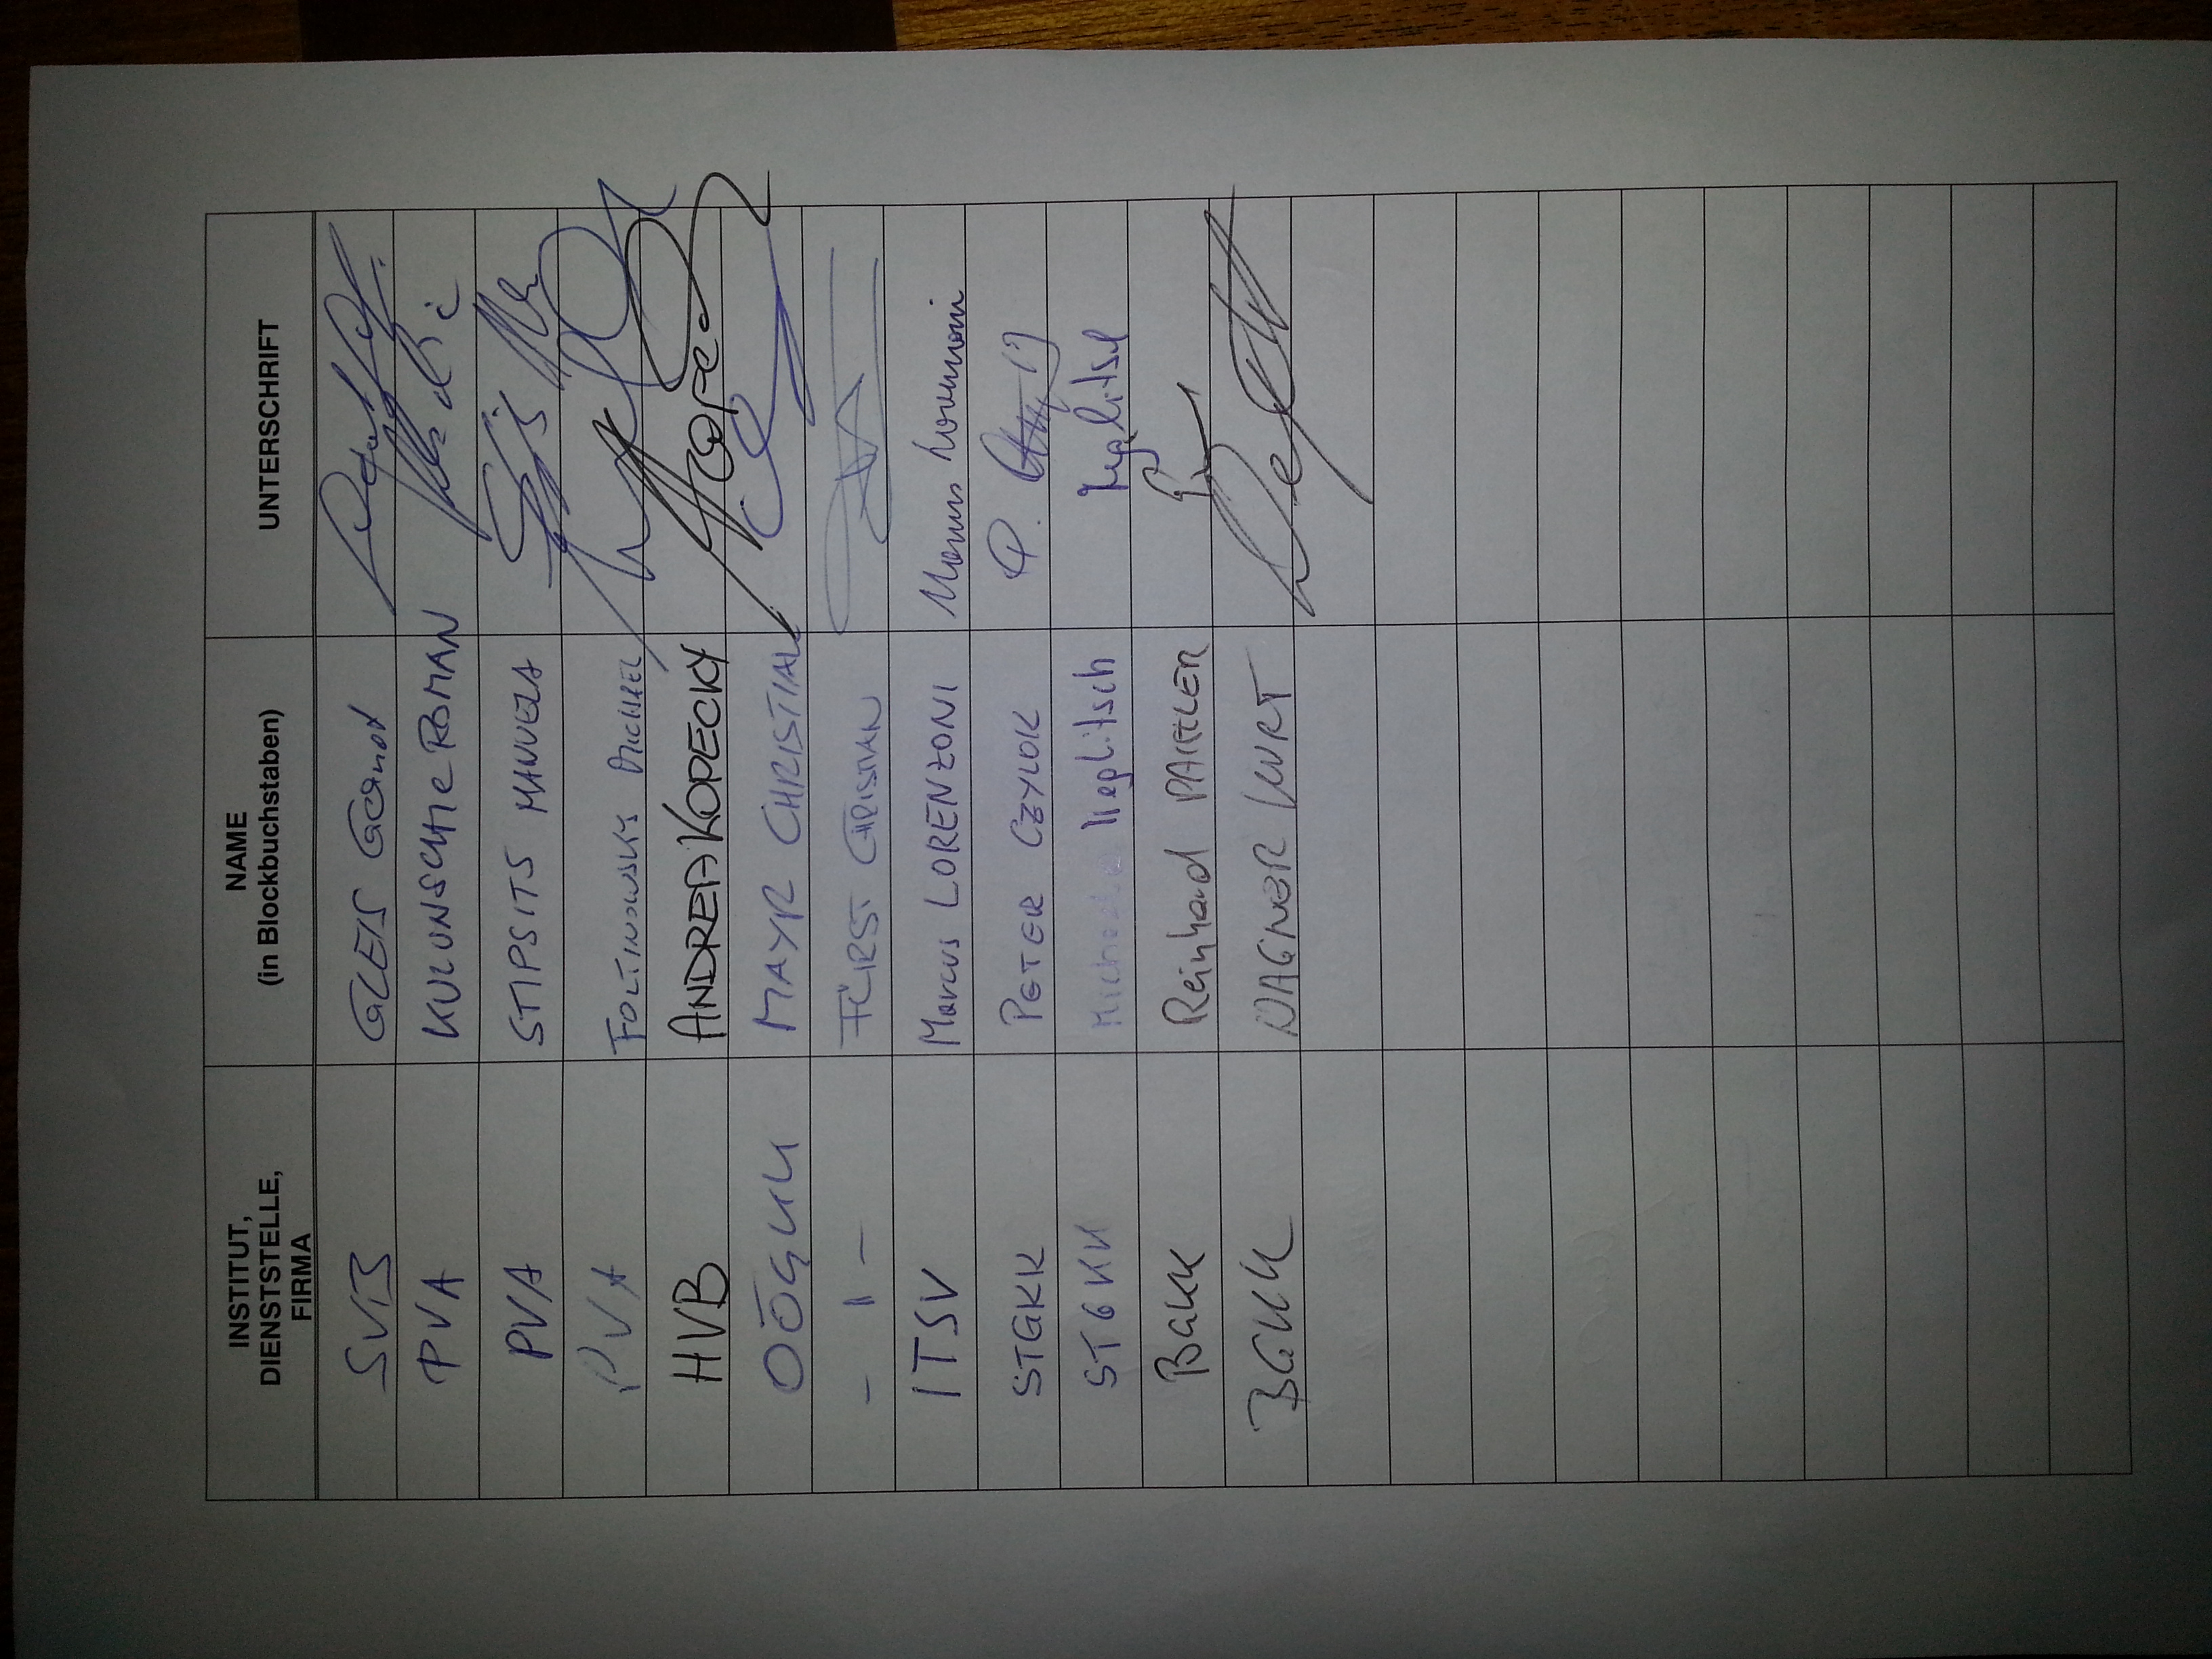 INSTITUT, DIENSTSTELLE, FIRMA NAME (in Blockbuchstaben) UNTERSCHRIFT
SVB GLEIS Gernot
PVA ROMAN
PVA STIPSITS MANUELA
PVA FOLTINOWSKY MICHAEL
HVB ANDREA KOPECKY
OÖGKK MAYR CHRISTIAN
- 1 - FÜRST CHRISTIAN
ITSV Marcus LORENZONI Marcus Lorenzoni
STGKK PETER CZYLOK P.
STGKK Michaela
BGKK Reinhard
BGKK WAGNER KURT